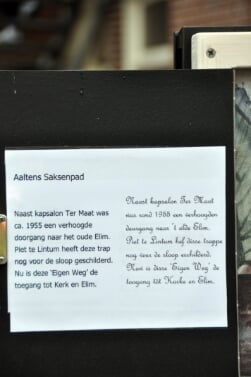 Aaltens Saksenpad
Naast kapsalon Ter Maat was
ca. 1955 een verhoogde
doorgang naar het oude Elim.
Piet te Lintum heeft deze trap
nog voor de sloop geschilderd.
Nu is deze 'Eigen Weg' de
toegang tot Kerk en Elim.
Naost kapsalon Ter Maat
was rond 1955 een verhoogden
deurgang naor 't olde Elim.
Piet te Lintum hef disse trappe
nog veur de sloop eschilderd.
Now is disse 'Eigen Weg' de
toegang tot Kerke en Elim.